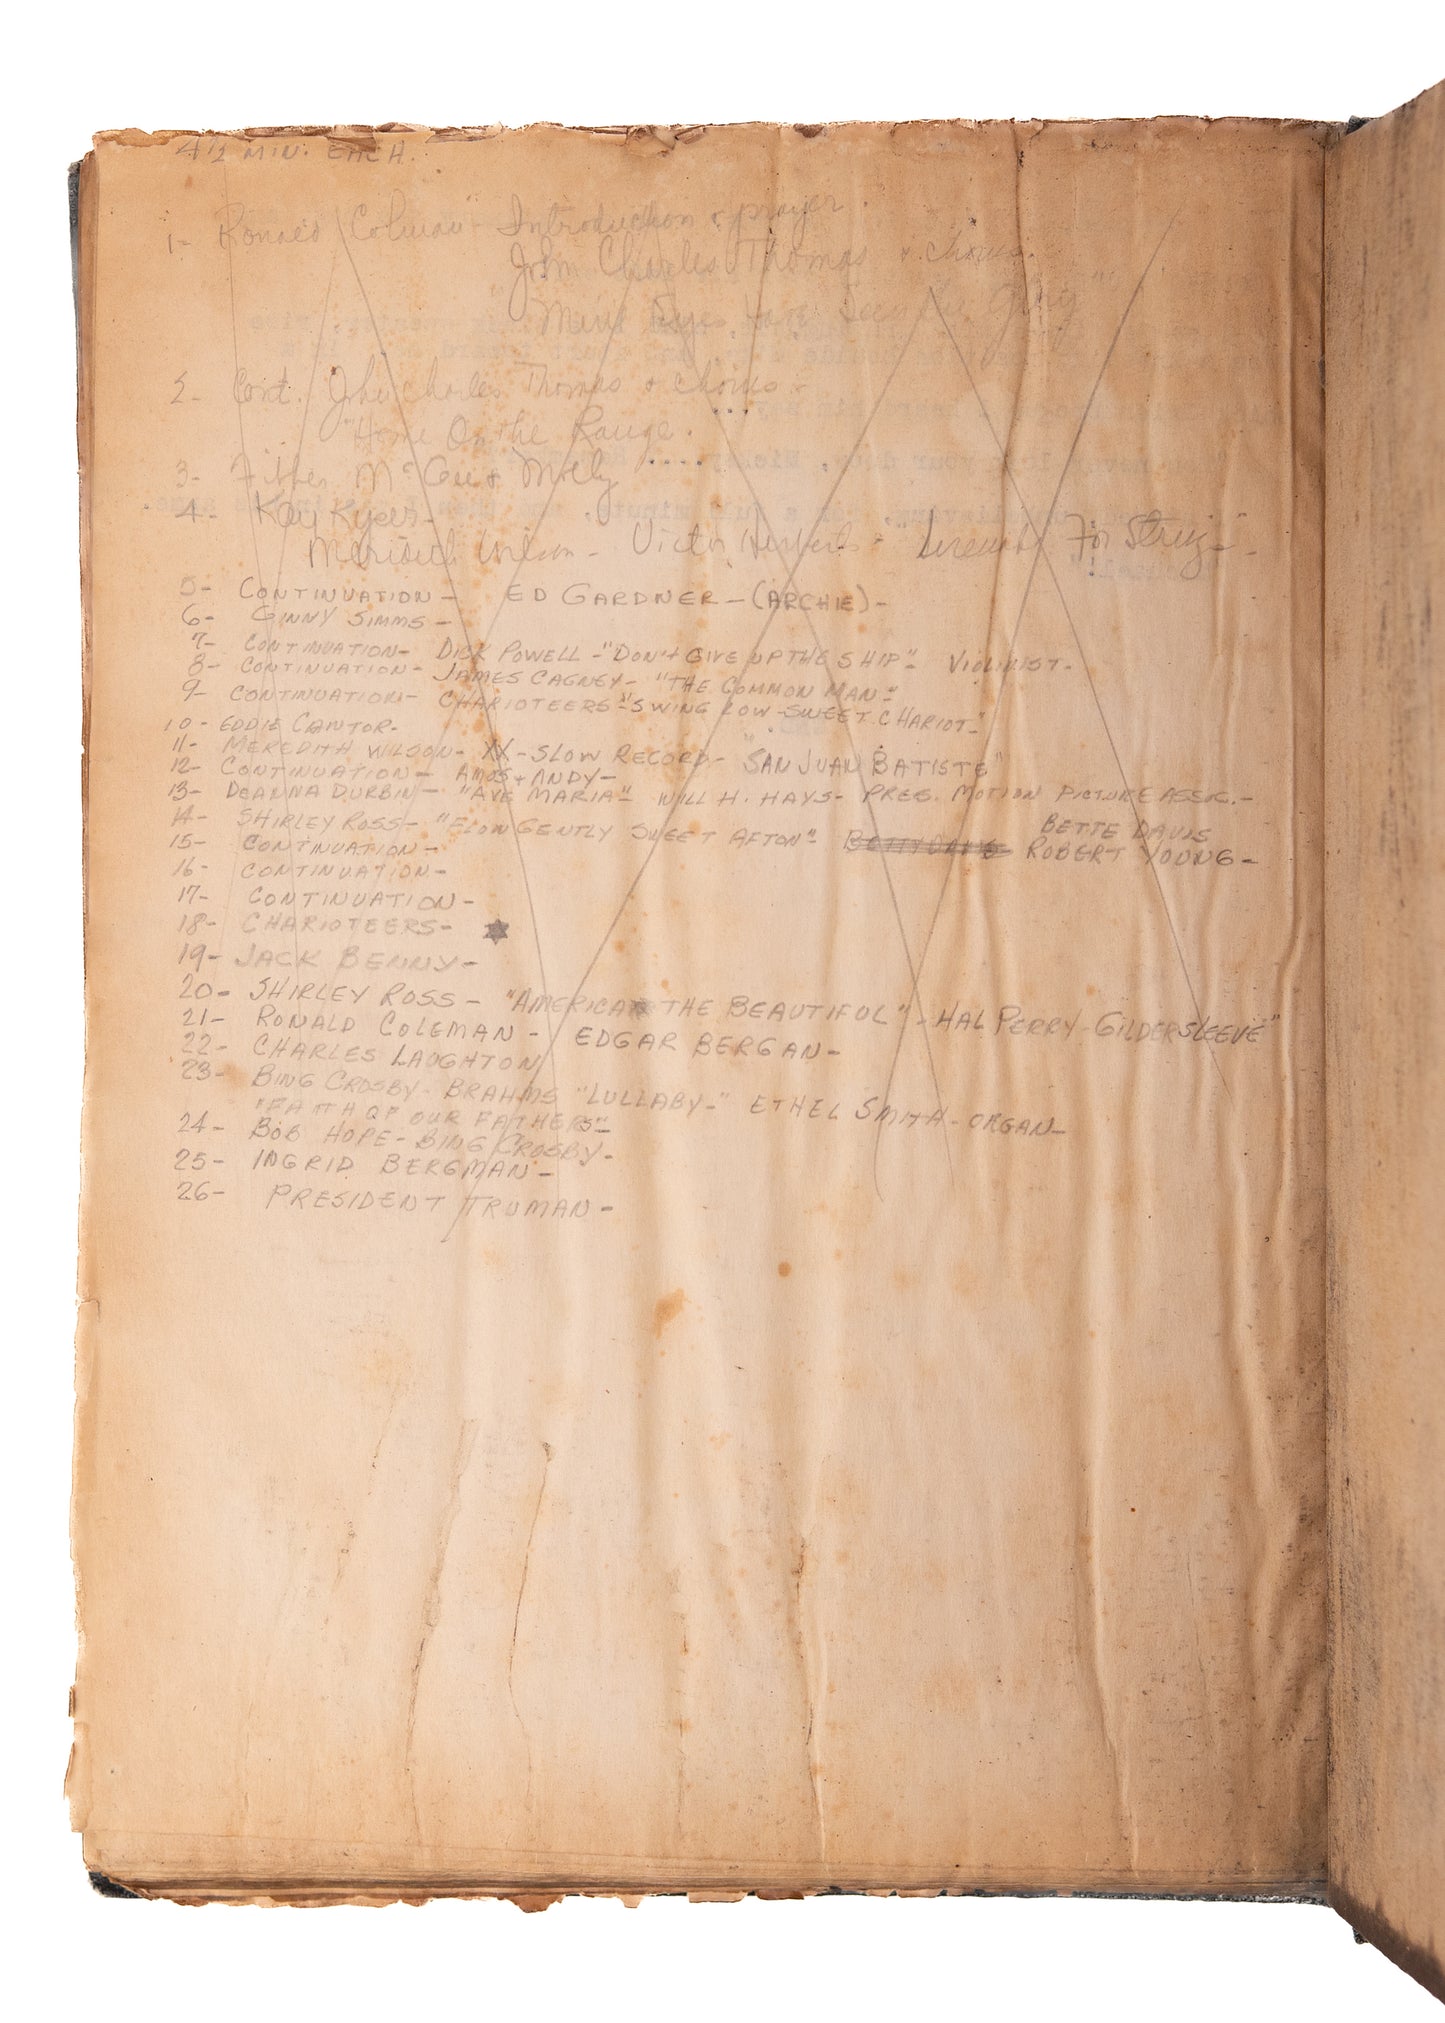 4 1/2 MIN. EACH.
1- Ronald Colman - Introduction & prayer.
John Charles Thomas & chorus.
"Mine Eyes Have Seen the Glory"
2- Cont. John Charles Thomas & chorus -
"Home On the Range.
3- Fibber McGee & Molly
4- Kay Kyser -
Meridith Wilson - Victor Herberts - "Serenade For Strings" -
5- CONTINUATION - ED GARDNER - (ARCHIE) -
6- GINNY SIMMS -
7- CONTINUATION - DICK POWELL - "DON'T GIVE UP THE SHIP" - VIOLINIST -
8- CONTINUATION - JAMES CAGNEY - "THE COMMON MAN -"
9- CONTINUATION - CHARIOTEERS - "SWING LOW SWEET CHARIOT -"
10- EDDIE CANTOR -
11- MEREDITH WILSON - XX - SLOW RECORD - "SAN JUAN BATISTE"
12- CONTINUATION - AMOS + ANDY -
13- DEANNA DURBIN - "AVE MARIA" - WILL H. HAYS - PRES. MOTION PICTURE ASSC. -
14- SHIRLEY ROSS - "FLOW GENTLY SWEET AFTON" - BETTY DAVIS BETTE DAVIS
15- CONTINUATION - ROBERT YOUNG -
16- CONTINUATION -
17- CONTINUATION -
18- CHARIOTEERS -
19- JACK BENNY -
20- SHIRLEY ROSS - "AMERICA THE BEAUTIFUL" - HAL PERRY - GILDERSLEEVE"
21- RONALD COLEMAN - EDGAR BERGAN -
22- CHARLES LAUGHTON
23- BING CROSBY - BRAHMS "LULLABY -" ETHEL SMITH - ORGAN -
"FAITH OF OUR FATHERS" -
24- BOB HOPE - BING CROSBY -
25- INGRID BERGMAN -
26- PRESIDENT TRUMAN -